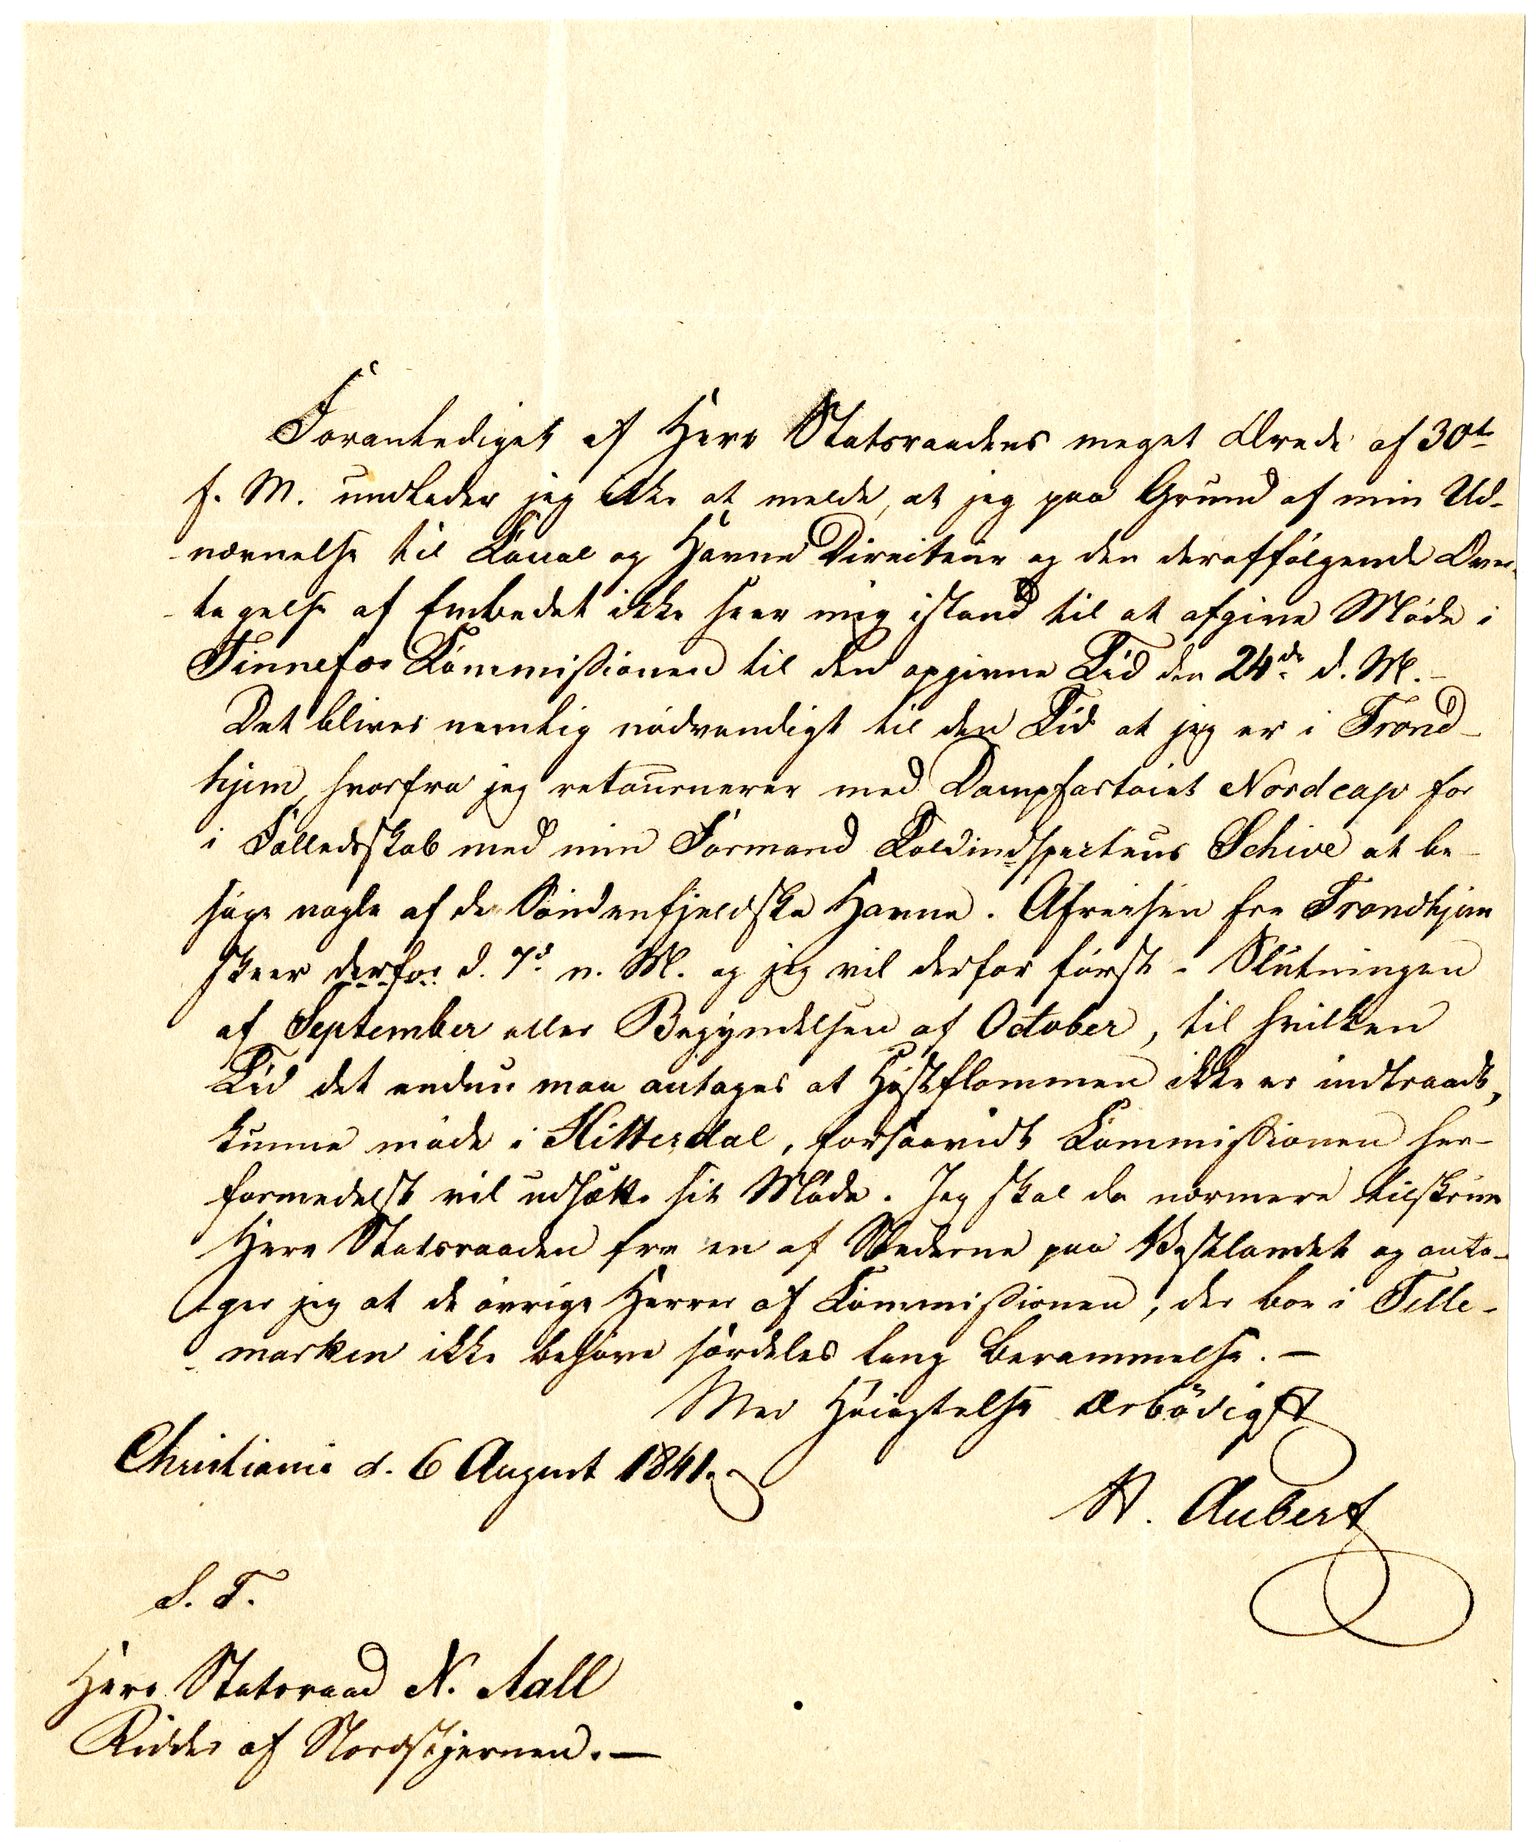 Foranlediget af Herr Statsraadens meget Ærede af 30te
f. M. undlader jeg ikke at melde, at jeg paa Grund af min Ud-
nævnelse til Canal og Havne Directeur og den deraffølgende Over-
tagelse af Embedet ikke seer mig istand til at afgive Møde i
Tinnefos Kommissionen til den opgivne Tid den 24de d. M. -
Det bliver nemlig nødvendigt til den Tid at jeg er i Trond-
hjem, hvorfra jeg retournerer med Dampfartøiet Nordcap for
i Følledsskab med min Formand Toldindspecteur Schive at be-
søge nogle af de Søndenfjeldske Havne. Afreisen fra Trondhjem
skeer derfor d. 7de n. M. og jeg vil derfor først i Slutningen
af September eller Begyndelsen af October, til hvilken
Tid det endnu maa antages at Høstflommen ikke er indtraadt,
kunne møde i Hitterdal, forsaavidt Kommissionen her-
formedelst vil udsætte sit Møde. Jeg skal da nærmere tilskrive
Herr Statsraaden fra en af Stæderne paa Vestlandet og anta-
ger jeg at de øvrige Herrer af Kommissionen, der boe i Telle-
marken ikke behøve særdeles lang Berammelse. -
Med Høiagtelse ærbødigst
Christiania d. 6 August 1841.
Aubert
S. T.
Herr Statsraad N. Aall
Ridder af Nordstjernen. -